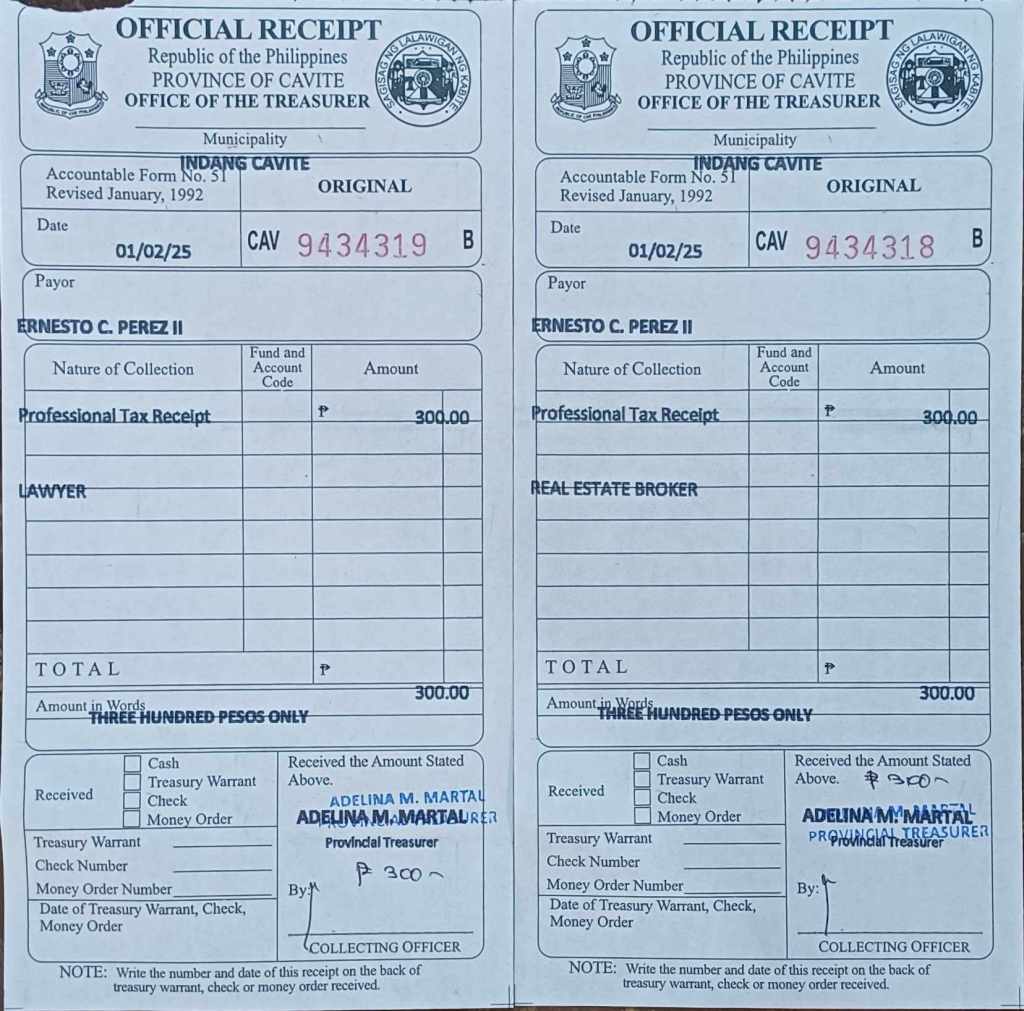 OFFICIAL RECEIPT
Republic of the Philippines
PROVINCE OF CAVITE
OFFICE OF THE TREASURER
SAGISAG NG LALAWIGAN NG KABITE
Municipality
INDANG CAVITE
Accountable Form No. 51
Revised January, 1992
ORIGINAL
Date
01/02/25
CAV 9434319 B
Payor
ERNESTO C. PEREZ II
Nature of Collection
Fund and
Account
Code
Amount
Professional Tax Receipt ₱ 300.00
LAWYER
TOTAL ₱
300.00
Amount in Words
THREE HUNDRED PESOS ONLY
Received
Cash
Treasury Warrant
Check
Money Order
Treasury Warrant
Check Number
Money Order Number
Date of Treasury Warrant, Check,
Money Order
Received the Amount Stated
Above.
ADELINA M. MARTAL
ADELINA M. MARTAL
PROVINCIAL TREASURER
Provincial Treasurer
₱ 300
By:
COLLECTING OFFICER
NOTE: Write the number and date of this receipt on the back of
treasury warrant, check or money order received.
OFFICIAL RECEIPT
Republic of the Philippines
PROVINCE OF CAVITE
OFFICE OF THE TREASURER
SAGISAG NG LALAWIGAN NG KABITE
Municipality
INDANG CAVITE
Accountable Form No. 51
Revised January, 1992
ORIGINAL
Date
01/02/25
CAV 9434318 B
Payor
ERNESTO C. PEREZ II
Nature of Collection
Fund and
Account
Code
Amount
Professional Tax Receipt ₱ 300.00
REAL ESTATE BROKER
TOTAL ₱
300.00
Amount in Words
THREE HUNDRED PESOS ONLY
Received
Cash
Treasury Warrant
Check
Money Order
Treasury Warrant
Check Number
Money Order Number
Date of Treasury Warrant, Check,
Money Order
Received the Amount Stated
Above. ₱ 300
ADELINA M. MARTAL
ADELINA M. MARTAL
PROVINCIAL TREASURER
Provincial Treasurer
By:
COLLECTING OFFICER
NOTE: Write the number and date of this receipt on the back of
treasury warrant, check or money order received.